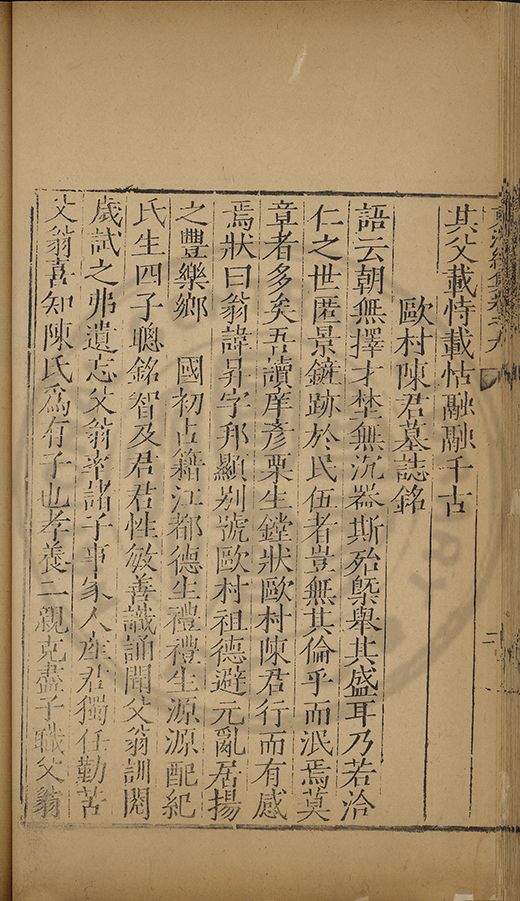 其父載恃載怙融融千古
歐村陳君墓誌銘
語云朝無擇才埜無沉器斯殆槩舉其盛耳乃若洽
仁之世匿景鏟跡於民伍者豈無其倫乎而泯焉莫
章者多矣吾讀庠彥栗生鏜狀歐村陳君行而有感
焉狀曰翁諱昇字邦顯别號歐村祖德避元亂居揚
之豐樂鄉 國初占籍江都德生禮禮生源源配紀
氏生四子聰銘智及君君性敏善識誦聞父翁訓閱
歲試之弗遺忘父翁率諸子事家人産君獨任勤苦
父翁喜知陳氏爲有子也孝養二親克盡子職父翁